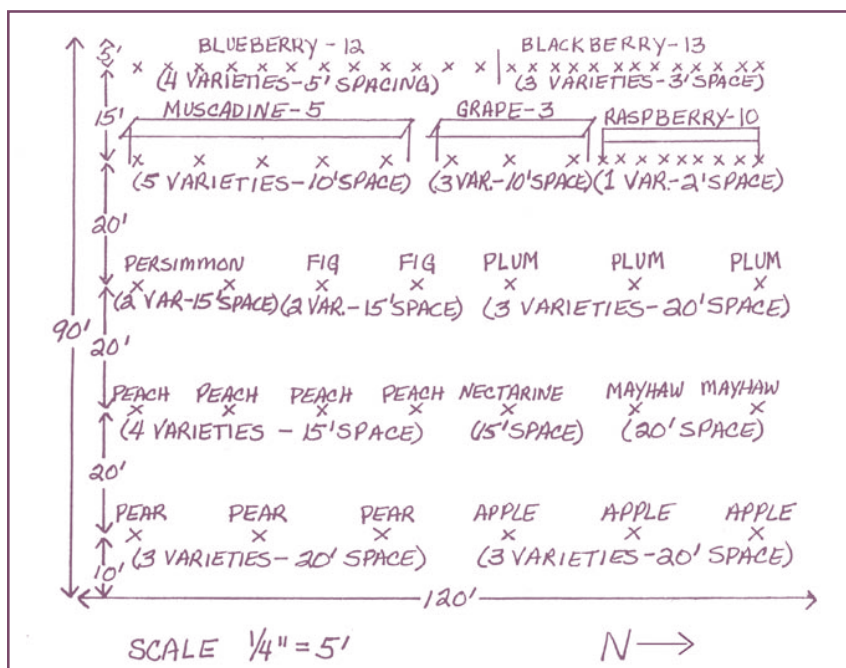 BLUEBERRY-12 BLACKBERRY-13
5'
(4 VARIETIES-5' SPACING) (3 VARIETIES-3' SPACE)
15'
MUSCADINE-5 GRAPE-3 RASPBERRY-10
(5 VARIETIES-10' SPACE) (3 VAR.-10' SPACE) (1 VAR.-2' SPACE)
20'
PERSIMMON FIG FIG PLUM PLUM PLUM
(2 VAR-15' SPACE) (2 VAR.-15' SPACE) (3 VARIETIES-20' SPACE)
90'
20'
PEACH PEACH PEACH PEACH NECTARINE MAYHAW MAYHAW
(4 VARIETIES - 15' SPACE) (15' SPACE) (20' SPACE)
20'
PEAR PEAR PEAR APPLE APPLE APPLE
(3 VARIETIES-20' SPACE) (3 VARIETIES-20' SPACE)
10'
120'
SCALE 1/4" = 5' N